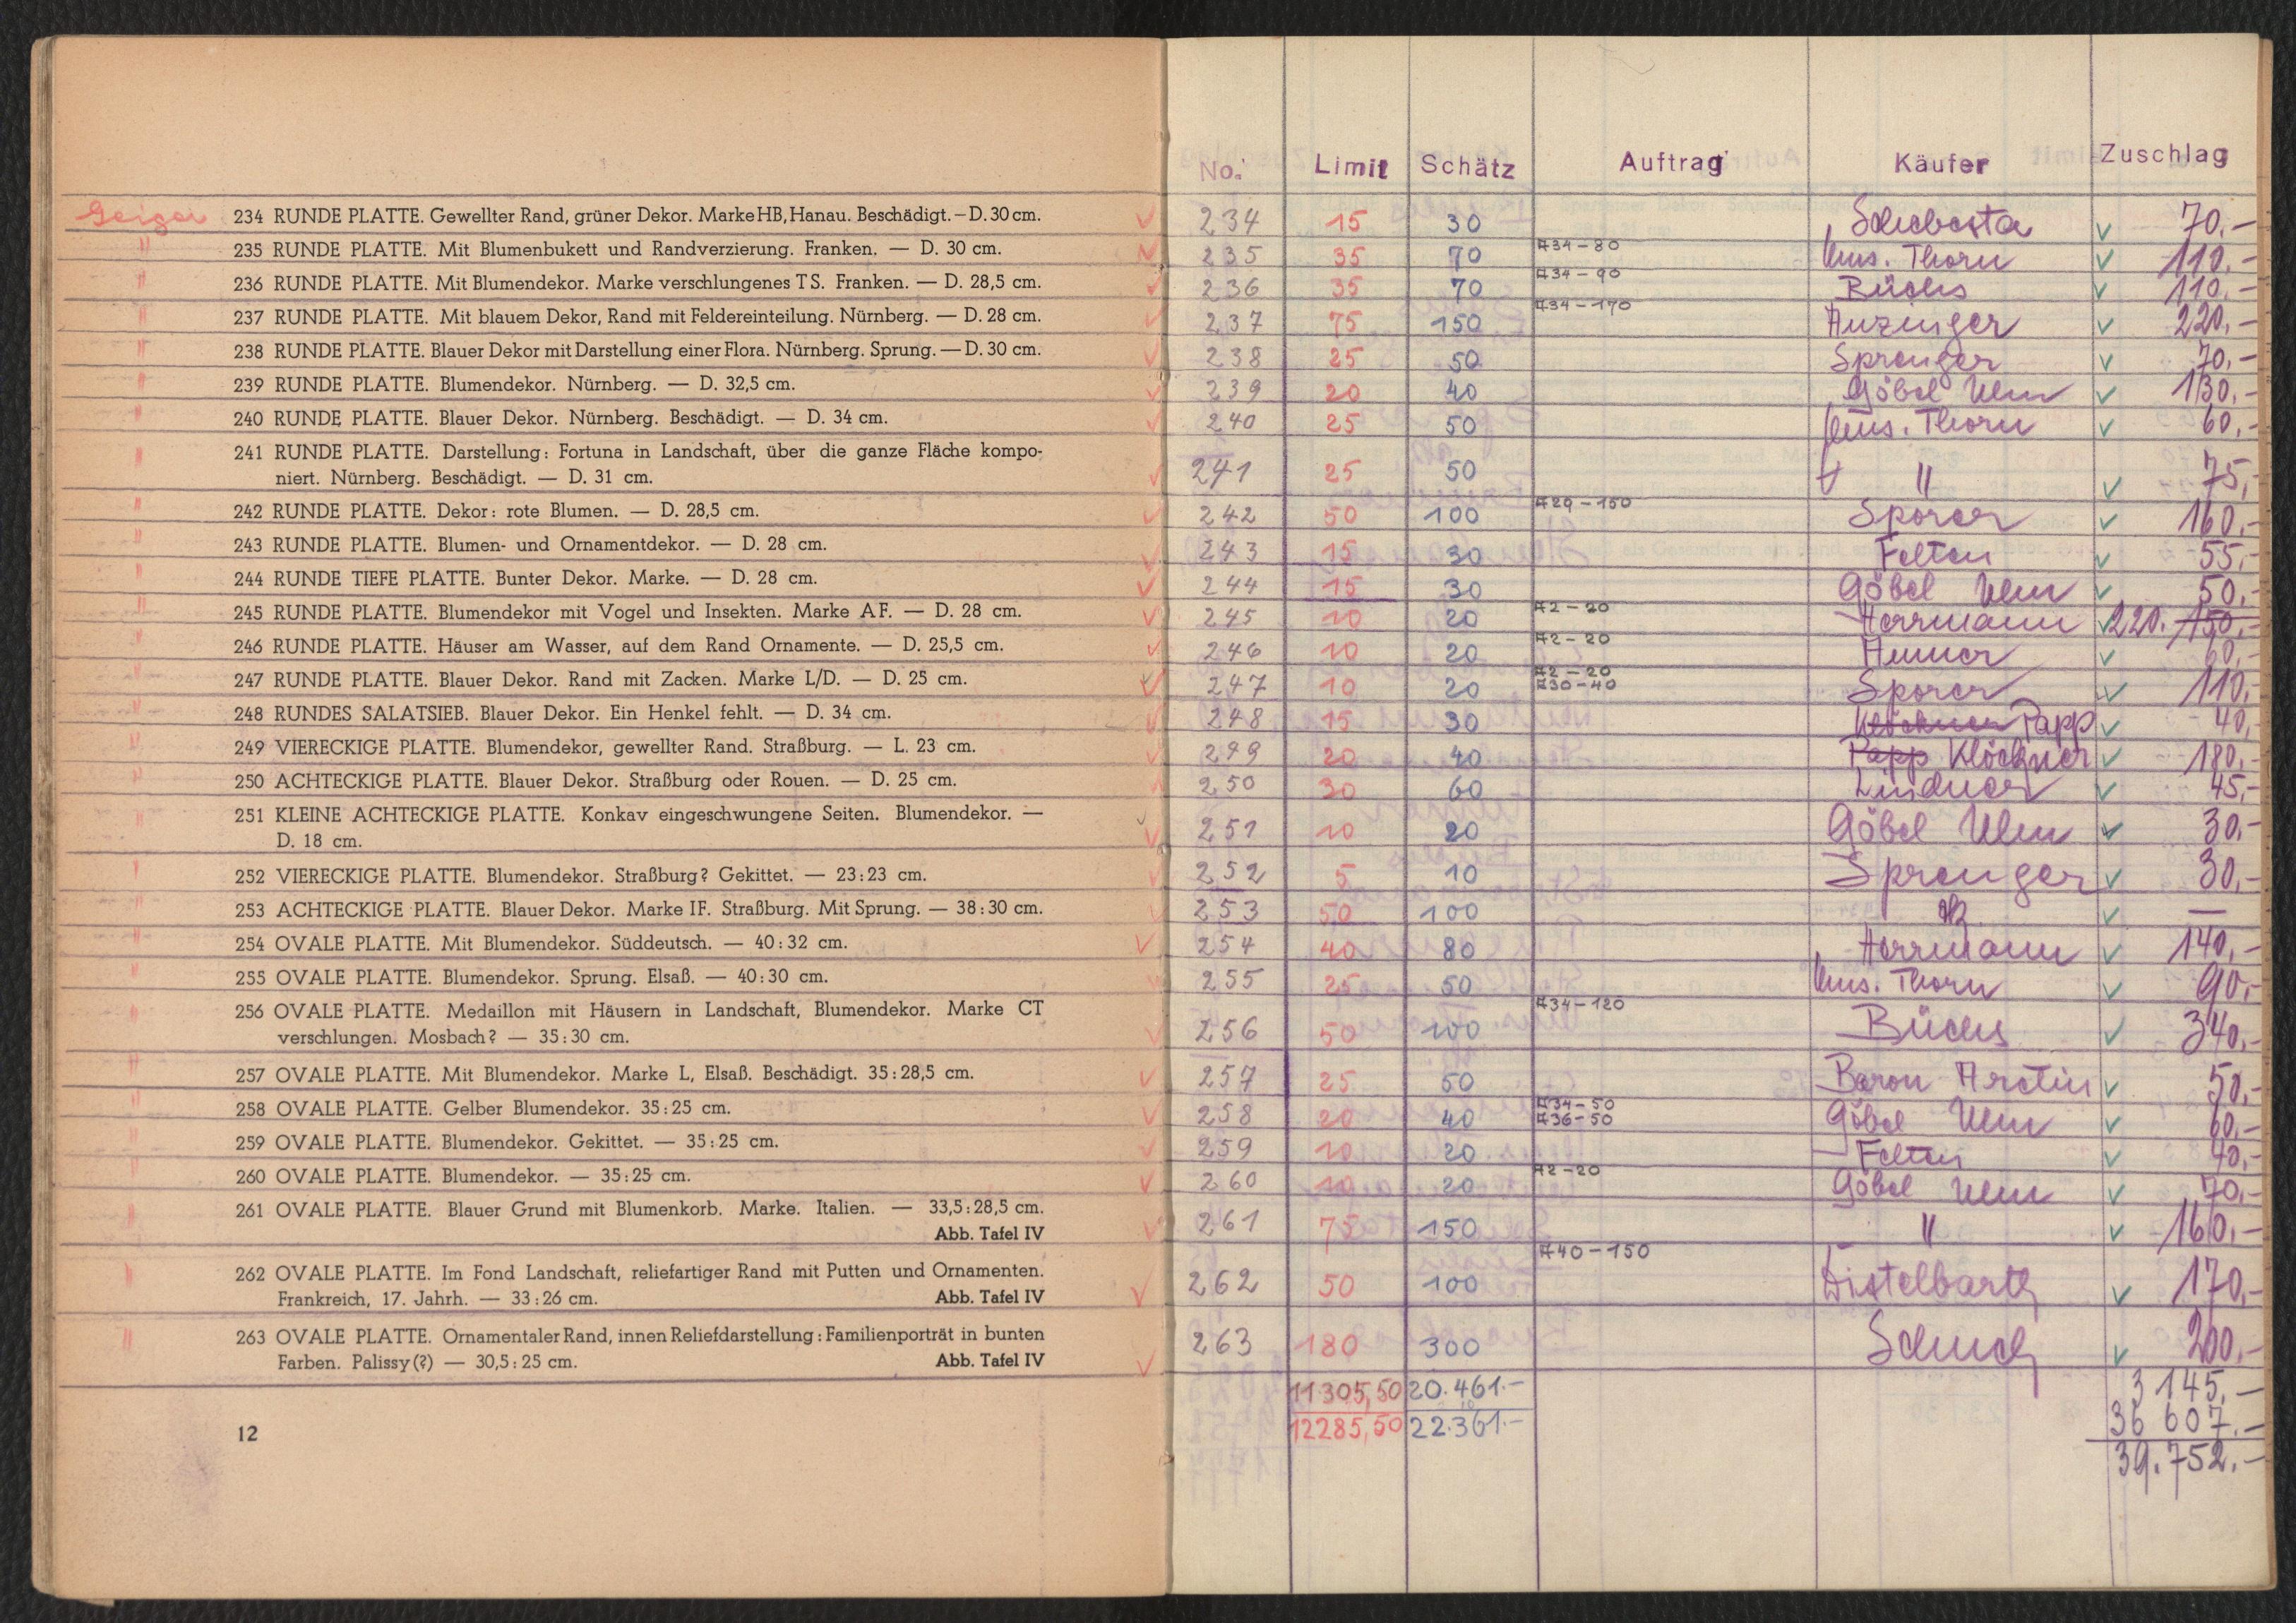 Geiger 234 RUNDE PLATTE. Gewellter Rand, grüner Dekor. Marke HB, Hanau. Beschädigt. — D. 30 cm.
" 235 RUNDE PLATTE. Mit Blumenbukett und Randverzierung. Franken. — D. 30 cm.
" 236 RUNDE PLATTE. Mit Blumendekor. Marke verschlungenes TS. Franken. — D. 28,5 cm.
" 237 RUNDE PLATTE. Mit blauem Dekor, Rand mit Feldereinteilung. Nürnberg. — D. 28 cm.
" 238 RUNDE PLATTE. Blauer Dekor mit Darstellung einer Flora. Nürnberg. Sprung. — D. 30 cm.
" 239 RUNDE PLATTE. Blumendekor. Nürnberg. — D. 32,5 cm.
" 240 RUNDE PLATTE. Blauer Dekor. Nürnberg. Beschädigt. — D. 34 cm.
" 241 RUNDE PLATTE. Darstellung: Fortuna in Landschaft, über die ganze Fläche kompo-
niert. Nürnberg. Beschädigt. — D. 31 cm.
" 242 RUNDE PLATTE. Dekor: rote Blumen. — D. 28,5 cm.
" 243 RUNDE PLATTE. Blumen- und Ornamentdekor. — D. 28 cm.
" 244 RUNDE TIEFE PLATTE. Bunter Dekor. Marke. — D. 28 cm.
" 245 RUNDE PLATTE. Blumendekor mit Vogel und Insekten. Marke AF. — D. 28 cm.
" 246 RUNDE PLATTE. Häuser am Wasser, auf dem Rand Ornamente. — D. 25,5 cm.
" 247 RUNDE PLATTE. Blauer Dekor. Rand mit Zacken. Marke L/D. — D. 25 cm.
" 248 RUNDES SALATSIEB. Blauer Dekor. Ein Henkel fehlt. — D. 34 cm.
" 249 VIERECKIGE PLATTE. Blumendekor, gewellter Rand. Straßburg. — L. 23 cm.
" 250 ACHTECKIGE PLATTE. Blauer Dekor. Straßburg oder Rouen. — D. 25 cm.
" 251 KLEINE ACHTECKIGE PLATTE. Konkav eingeschwungene Seiten. Blumendekor. —
D. 18 cm.
" 252 VIERECKIGE PLATTE. Blumendekor. Straßburg? Gekittet. — 23:23 cm.
" 253 ACHTECKIGE PLATTE. Blauer Dekor. Marke IF. Straßburg. Mit Sprung. — 38:30 cm.
" 254 OVALE PLATTE. Mit Blumendekor. Süddeutsch. — 40:32 cm.
" 255 OVALE PLATTE. Blumendekor. Sprung. Elsaß. — 40:30 cm.
" 256 OVALE PLATTE. Medaillon mit Häusern in Landschaft, Blumendekor. Marke CT
verschlungen. Mosbach? — 35:30 cm.
" 257 OVALE PLATTE. Mit Blumendekor. Marke L, Elsaß. Beschädigt. 35:28,5 cm.
" 258 OVALE PLATTE. Gelber Blumendekor. 35:25 cm.
" 259 OVALE PLATTE. Blumendekor. Gekittet. — 35:25 cm.
" 260 OVALE PLATTE. Blumendekor. — 35:25 cm.
" 261 OVALE PLATTE. Blauer Grund mit Blumenkorb. Marke. Italien. — 33,5:28,5 cm.
Abb. Tafel IV
" 262 OVALE PLATTE. Im Fond Landschaft, reliefartiger Rand mit Putten und Ornamenten.
Frankreich, 17. Jahrh. — 33:26 cm. Abb. Tafel IV
" 263 OVALE PLATTE. Ornamentaler Rand, innen Reliefdarstellung: Familienporträt in bunten
Farben. Palissy (?) — 30,5:25 cm. Abb. Tafel IV
12
No. Limit Schätz Auftrag Käufer Zuschlag
234 15 30 Schebesta 70.-
235 35 70 A34-80 Mus. Thorn 110.-
236 35 70 A34-90 Büchs 110.-
237 75 150 A34-170 Anzinger 220.-
238 25 50 Sprenger 70.-
239 20 40 Göbel Ulm 130.-
240 25 50 Mus. Thorn 60.-
241 25 50 " 75.-
242 50 100 A29-150 Sporer 160.-
243 15 30 Felten 55.-
244 15 30 Göbel Ulm 50.-
245 10 20 A2-20 Herrmann 220. 150.-
246 10 20 A2-20 60.-
247 10 20 A2-20 A30-40 Sporer 110.-
248 15 30 Klöckner Papp 40.-
249 20 40 Papp Klöckner 180.-
250 30 60 Lindner 45.-
251 10 20 Göbel Ulm 30.-
252 5 10 Sprenger 30.-
253 50 100 —
254 40 80 Herrmann 140.-
255 25 50 Mus. Thorn 90.-
256 50 100 A34-120 Büchs 340.-
257 25 50 Baron Aretin 50.-
258 20 40 A34-50 A36-50 Göbel Ulm 60.-
259 10 20 Felten 40.-
260 10 20 A2-20 Göbel Ulm 70.-
261 75 150 " 160.-
262 50 100 A40-150 Distelbarth 170.-
263 180 300 Schuch 200.-
11305,50 20.461.- 3 145.-
12285,50 22.361.- 36 607.-
39.752.-